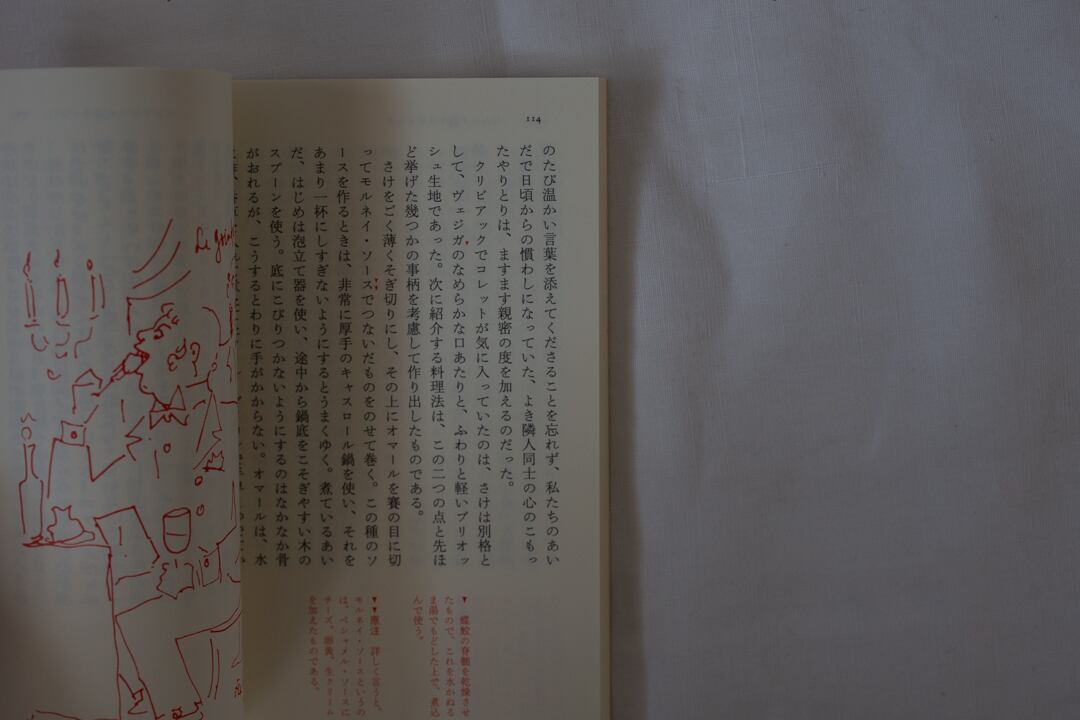 114
のたび温かい言葉を添えてくださることを忘れず、私たちのあい
だで日頃からの慣わしになっていた、よき隣人同士の心のこもっ
たやりとりは、ますます親密の度を加えるのだった。
クリビアックでコレットが気に入っていたのは、さけは別格と
して、ヴェジガのなめらかな口あたりと、ふわりと軽いブリオッ
シュ生地であった。次に紹介する料理法は、この二つの点と先ほ
ど挙げた幾つかの事柄を考慮して作り出したものである。
さけをごく薄くそぎ切りにし、その上にオマールを賽の目に切
ってモルネイ・ソースでつないだものをのせて巻く。この種のソ
ースを作るときは、非常に厚手のキャスロール鍋を使い、それを
あまり一杯にしすぎないようにするとうまくゆく。煮ているあい
だ、はじめは泡立て器を使い、途中から鍋底をこそぎやすい木の
スプーンを使う。底にこびりつかないようにするのはなかなか骨
がおれるが、こうするとわりに手がかからない。オマールは、水
▼ 蝶鮫の脊髄を乾燥させ
たもので、これを水かぬる
ま湯でもどした上で、煮込
んで使う。
▼▼原注 詳しく言うと、
モルネイ・ソースというの
は、ベシャメル・ソースに
チーズ、卵黄、生クリーム
を加えたものである。
Le